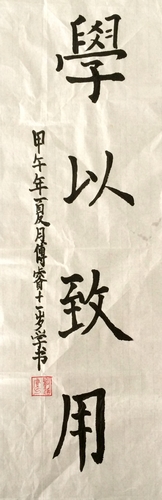 學以致用
甲午年夏月傅睿十一岁学书